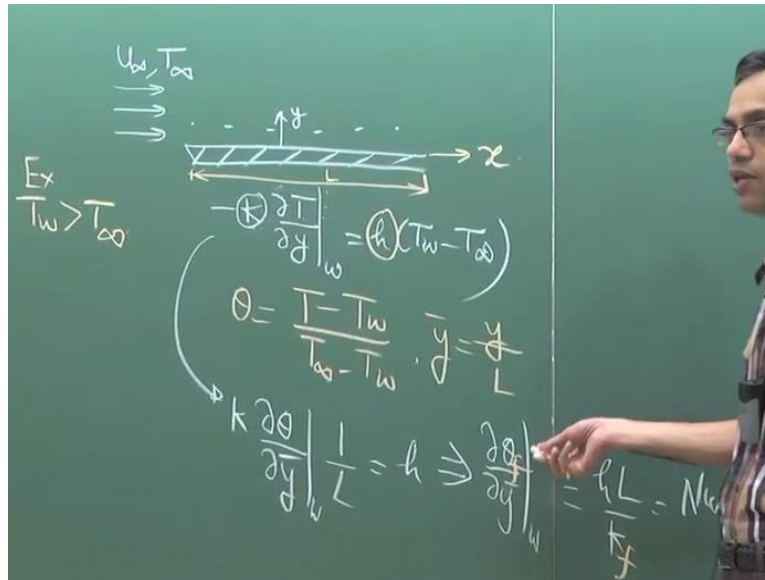 U∞, T∞
y
x
L
Ex
Tw > T∞
-k ∂T/∂y|w = h(Tw - T∞)
θ = (T - Tw)/(T∞ - Tw) . ȳ = y/L
k ∂θ/∂ȳ|w 1/L = h ⇒ ∂θf/∂ȳ|w = hL/kf = Nu